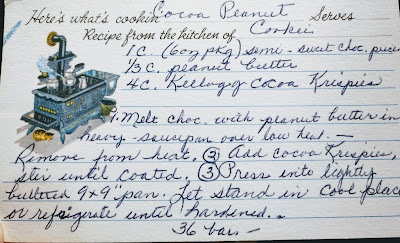 Here's what's cookin' Cocoa Peanut Serves
Recipe from the kitchen of Cookies
1 C. (6 oz pkg) semi-sweet choc. pieces
1/3 C. peanut butter
4 C. Kellogg Cocoa Krispies
1. Melt choc. with peanut butter in
heavy-saucepan over low heat. —
Remove from heat. ② Add cocoa Krispies,
stir until coated. ③ Press into lightly
buttered 9x9" pan. Let stand in cool place
or refrigerate until hardened.
36 bars —